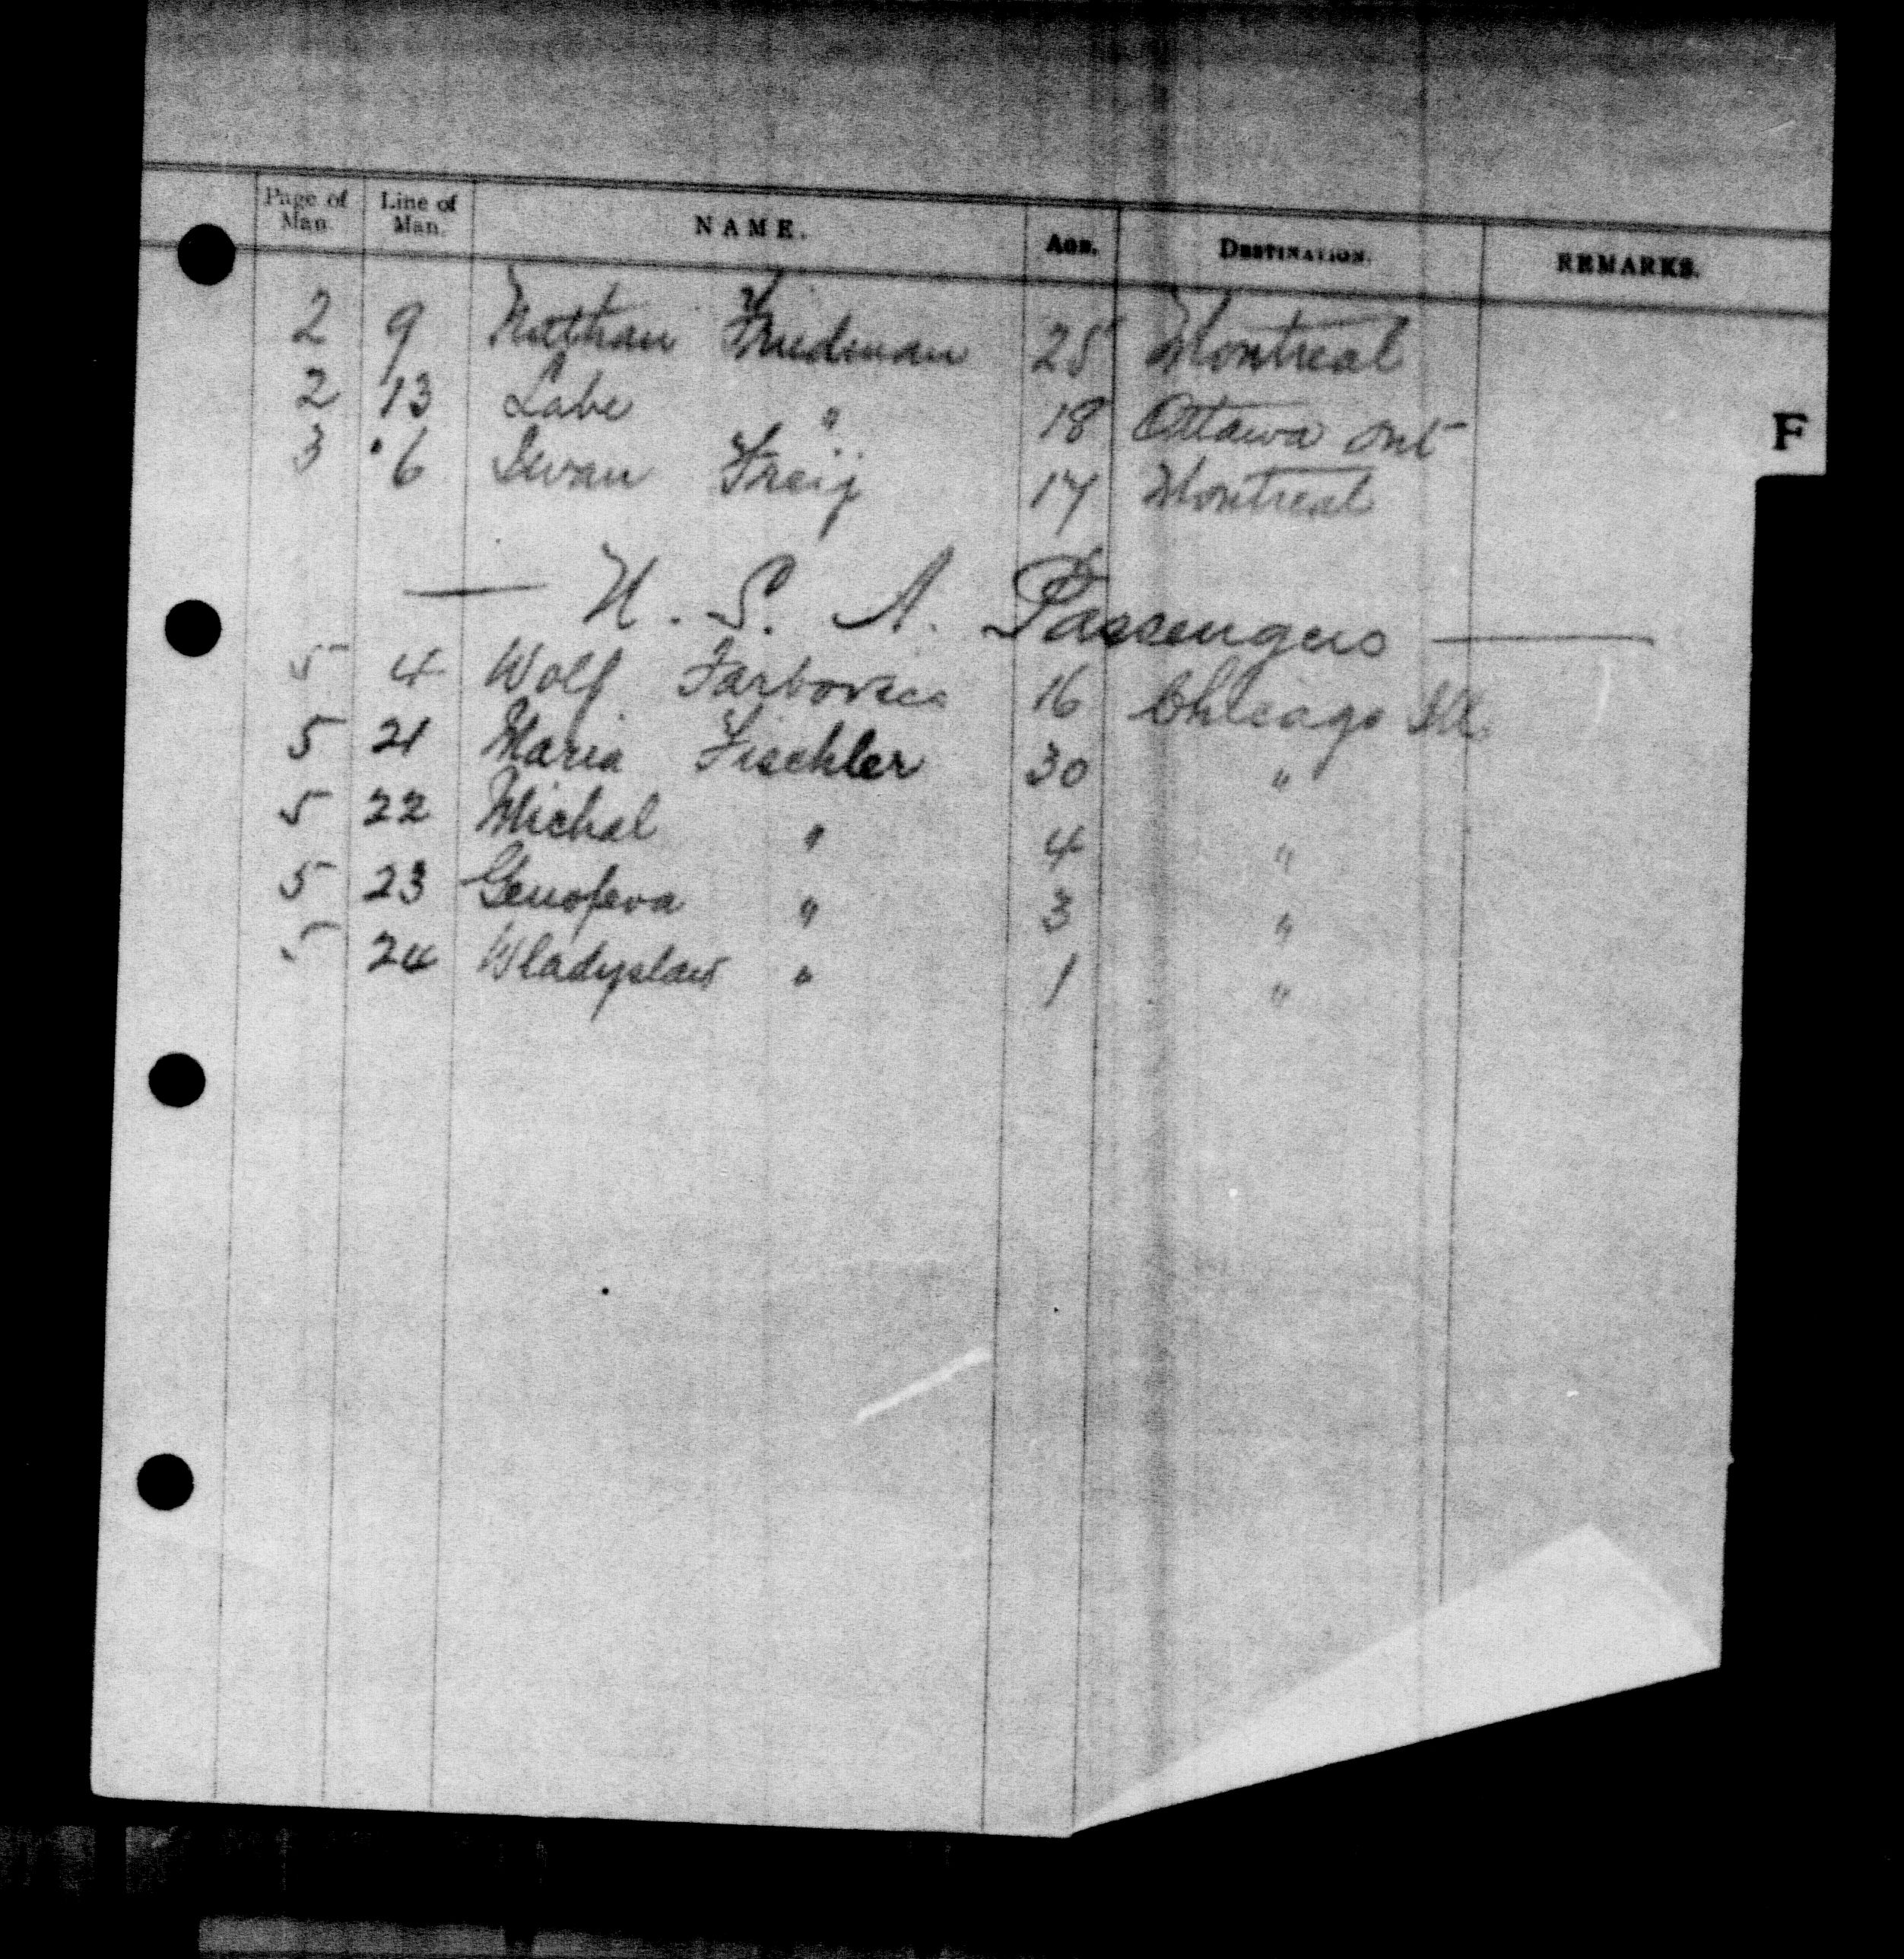 Page of Man. Line of Man. NAME. AGE. DESTINATION. REMARKS.
2 9 Nathan Friedman 25 Montreal
2 13 Labe " 18 Ottawa Ont
F
3 6 Iwan Freij 17 Montreal
— U. S. A. Passengers —
5 4 Wolf 16 Chicago Ill.
5 21 Maria Fischler 30 "
5 22 Michal " 4 "
5 23 Genofeva " 3 "
5 24 Wladyslaw " 1 "